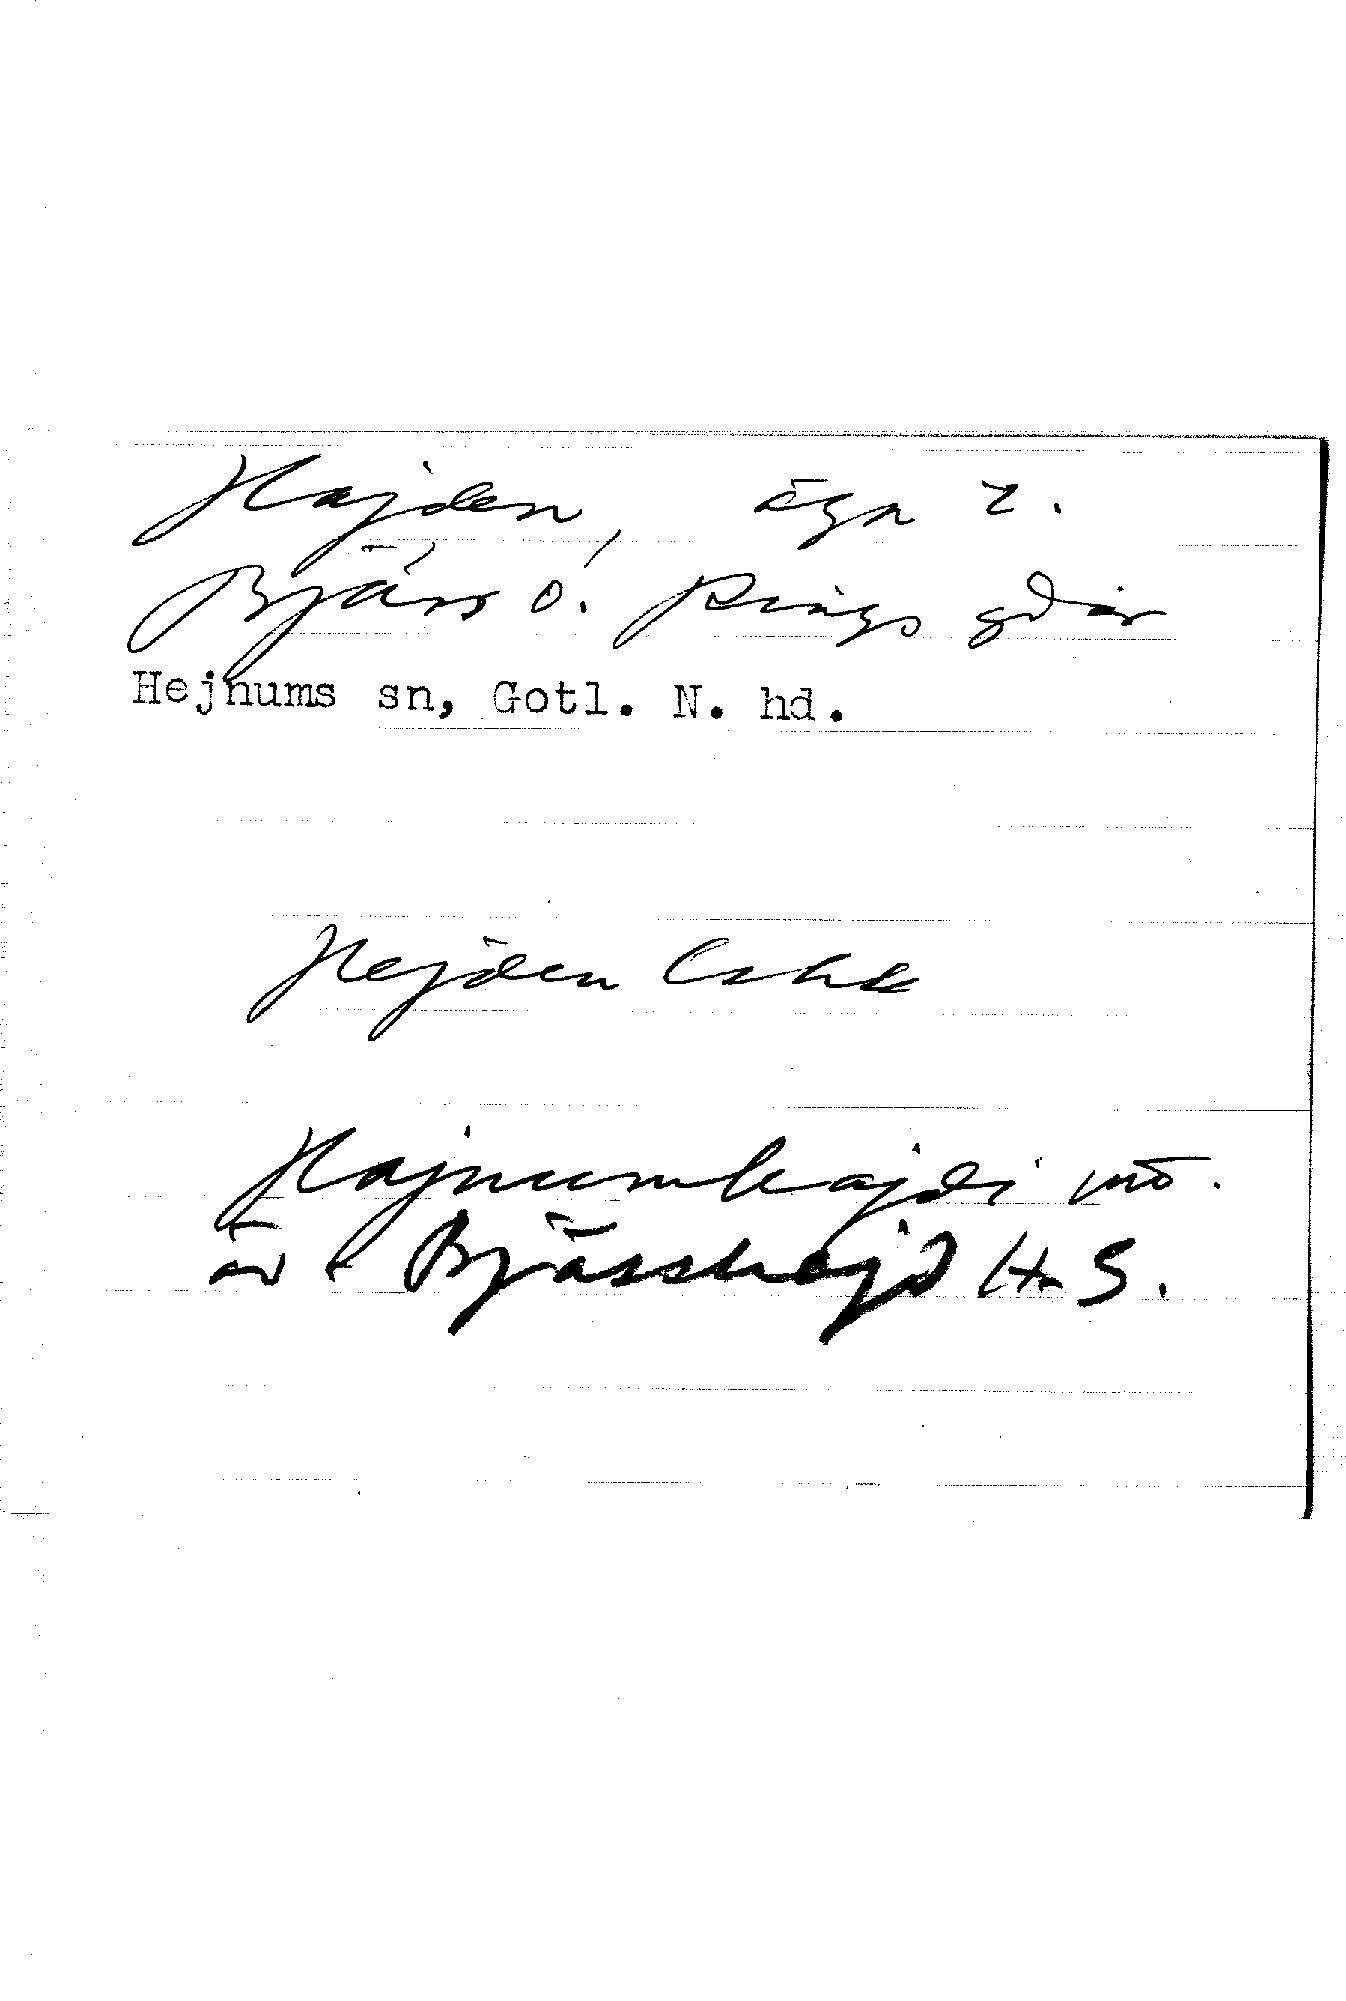 Hajden, äga t.
Bjärs o. Rings gdar
Hejnums sn, Gotl. N. hd.
Hejden
Hajnumhajdi
äv Bjässhejd